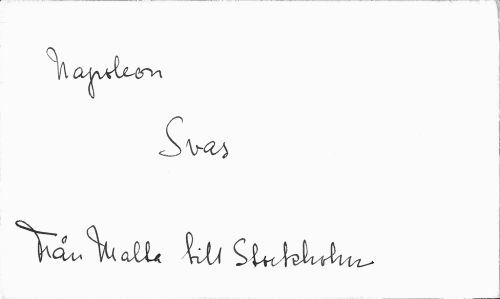 Napoleon
Svas
Från Malta till Stockholm